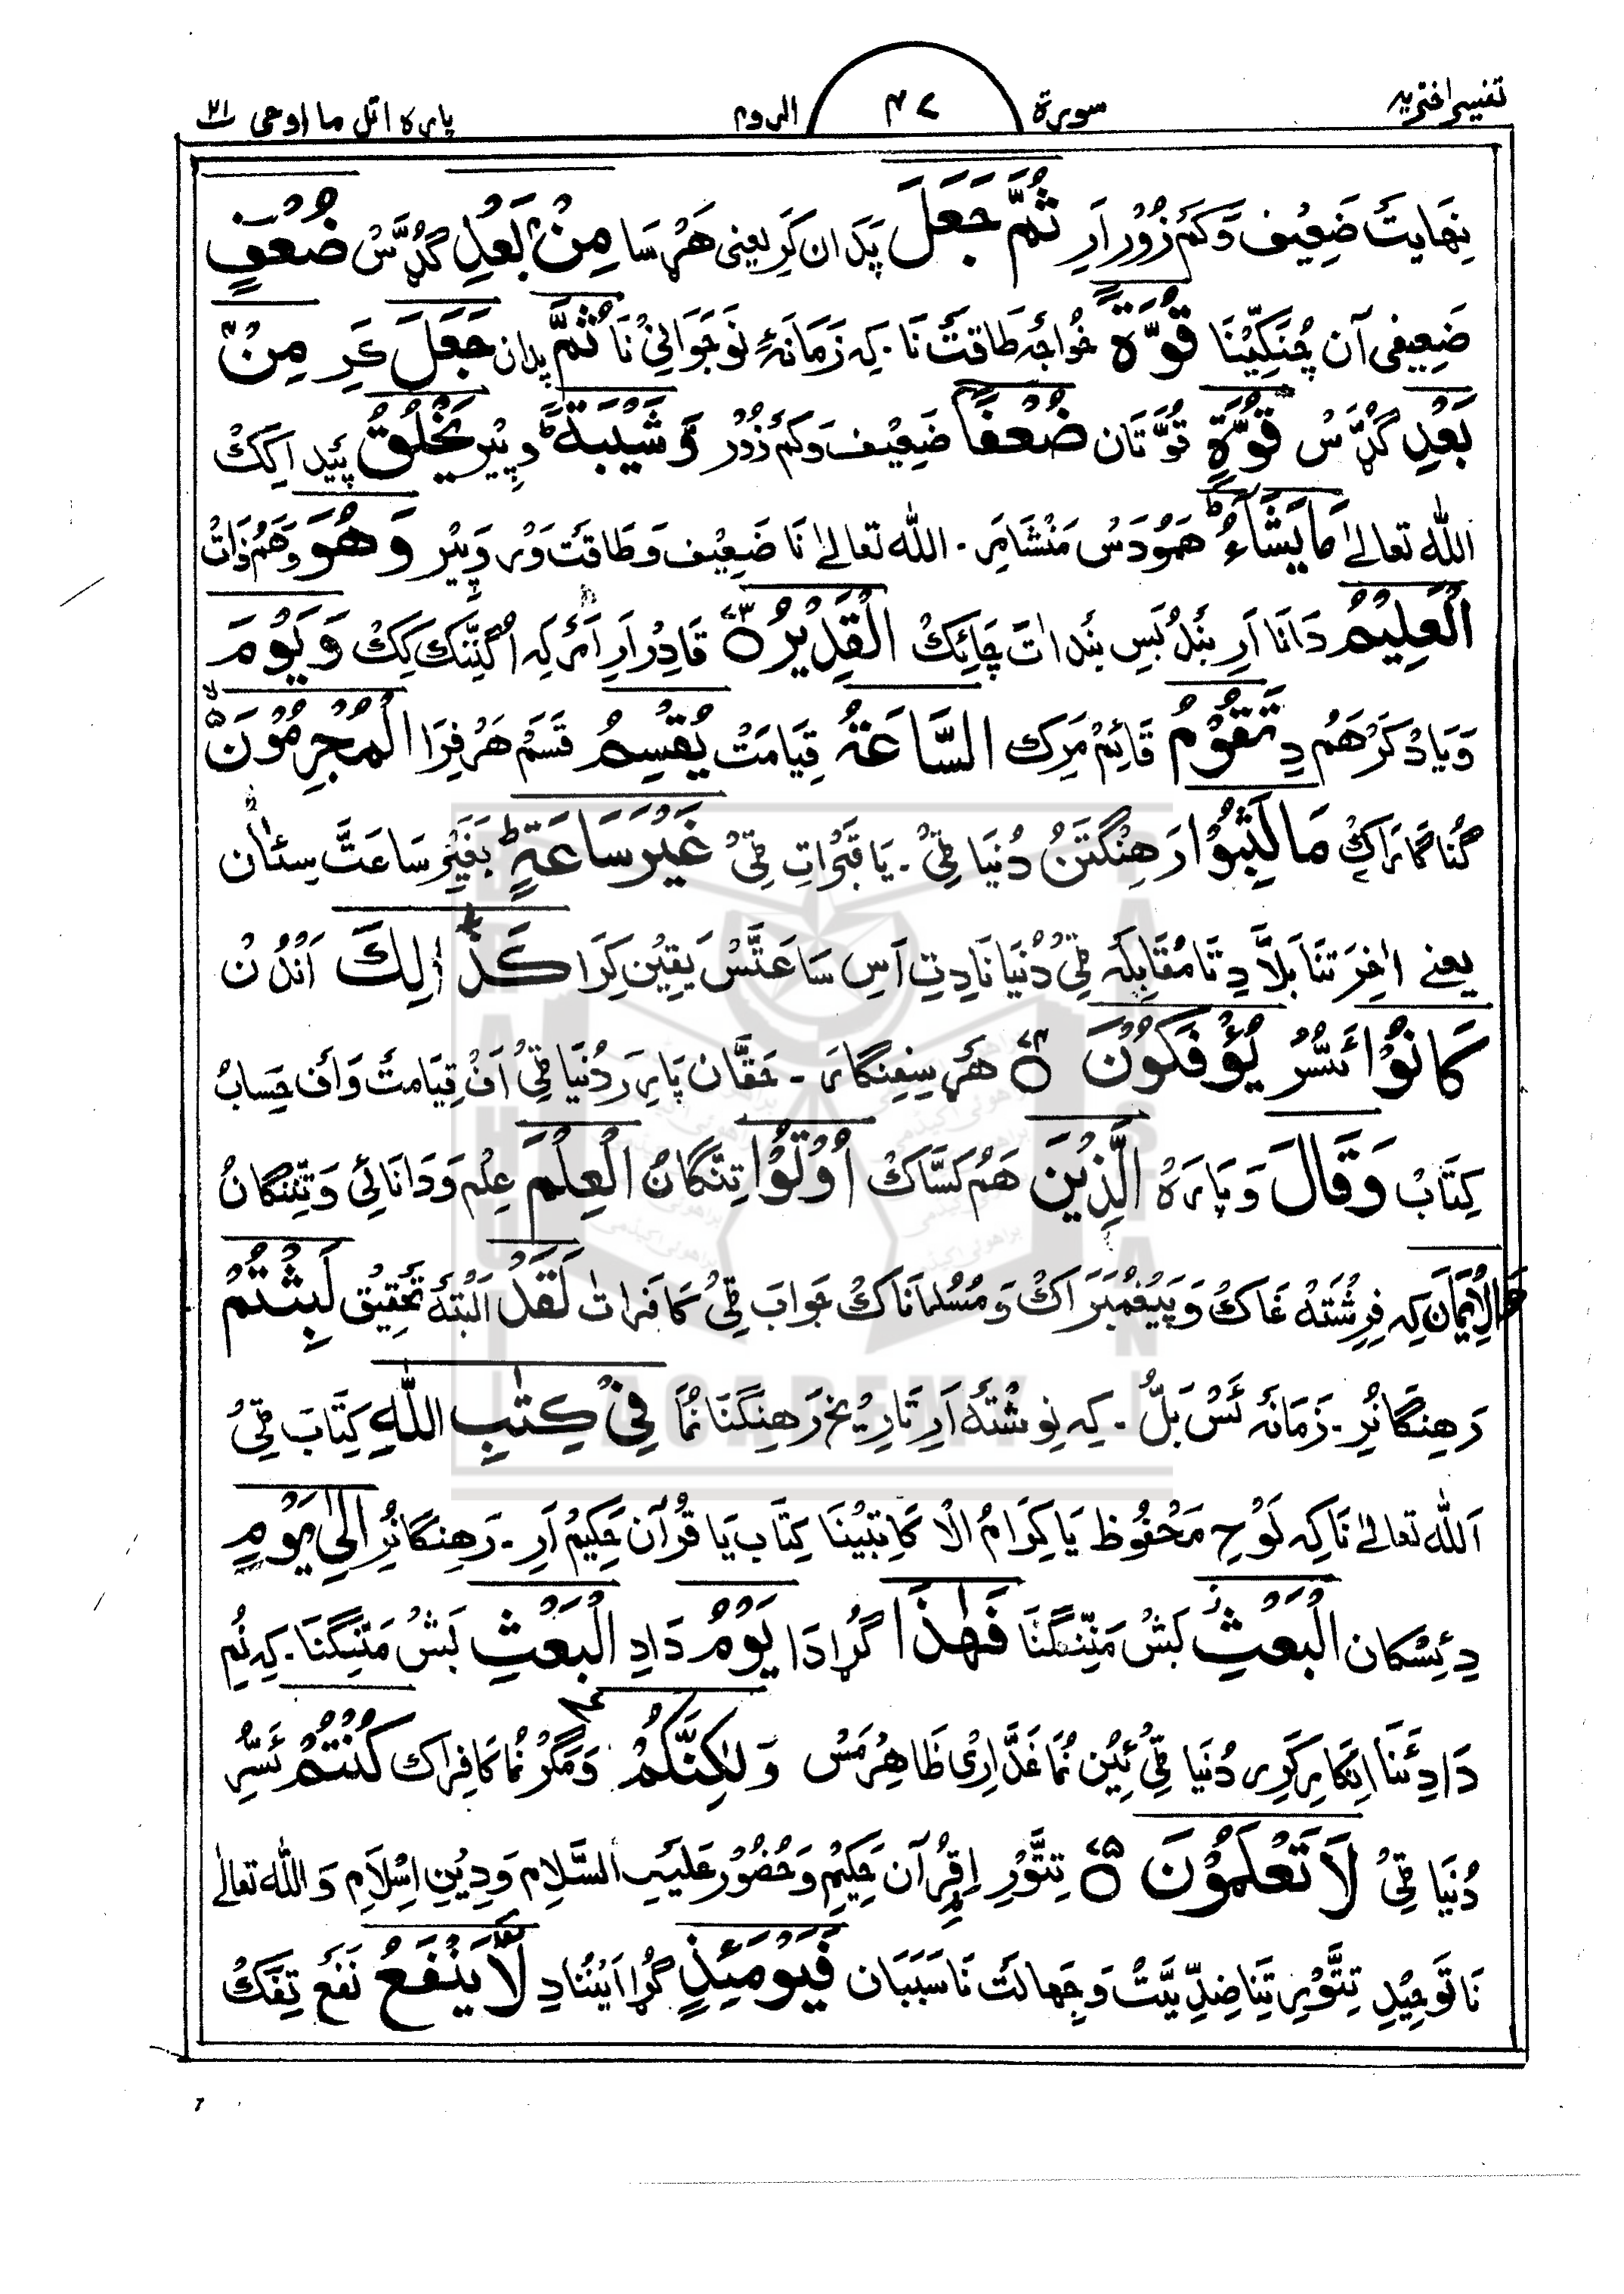 تفسیر اختریہ سورۃ ۴۷ الروم پارہ اتل ما اوحی ۲۱
نِھَایَتَ ضَعِیْف وَکَمْ زُوْر اَرِ ثُمَّ جَعَلَ پَدَان کَرِ یعنی ھَرْسَا مِنْۢ بَعْدِ گُڈ سُّ ضُعْفٍ
ضَعِیفی آن چُنَکِّیْنَا قُوَّۃً خُواجَہ طَاقَتْ نَا۔ کہ زَمَانَۂِ نَوجَوَانِیْ نَا ثُمَّ پدان جَعَلَ کَرِ مِنْۢ
بَعْدِ گُڈ سُّ قُوَّۃٍ قُوَّتَان ضُعْفًا ضَعِیْف وَکَمْ زُوْر وَّ شَیْبَۃً ؕ وپِیْر یَخْلُقُ پَیْدا کِکْ
اللّٰہ تعالیٰ مَا یَشَآءُ ؕ ھَمُودَسْ مَنْشَا مَر۔ اللّٰہ تعالیٰ نَا ضَعِیْف وَ طَاقَتْ وَر وَپِیْر وَھُوَ وَھَم ذَاتْ
الْعَلِیْمُ دَانَا اَرِ بَنْدُ بَس بَنْدَاتَ چَائِکْ الْقَدِیْرُ ۝ ۷۳ قَادِر اَرِ اَمَر کِہ اُ کَنِّنْکَ کِکْ وَ یَوْمَ
وَیَاد کَرْ ھَمْ دِ تَقُوْمُ قَائِمْ مَرِک السَّاعَۃُ قِیَامَتْ یُقْسِمُ قَسَمْ ھَرْفِرَا الْمُجْرِمُوْنَ ۙ۵
گُنَاگَارَاکْ مَا لَبِثُوْا رَھِنْگَتَنُ دُنْیَا ٹِیْ۔ یَا قَبْرَاتِ ٹِیْ غَیْرَ سَاعَۃٍ ؕ بَغَیْرْ سَاعَتَّ سِئَان
یعنے اٰخِرَتنَا بَلَّا دِتَا مُقَابِلَہ ٹِیْ دُنْیَا نَادِتِ اَسِ سَاعَتَّسْ یَقِیْن کِرَا کَذٰلِکَ اَنْدُنْ
کَانُوْا ئَسُّرُ یُؤْفَکُوْنَ ۝ ۷۴ ھَر سِفِنگَارَ۔ حَقَّان پَارِرَ دُنْیَا ٹِیْ اَفْ قِیَامَتْ وَاَفْ حِسَابْ
کِتَابْ وَقَالَ وَ پَارَہْ الَّذِیْنَ ھَمْ کَسَّاکْ اُوْتُوا تِنَّگَانُ الْعِلْمَ عِلْم وَ دَانَائِی وَ تِنَّنْگَانُ
وَالْاِیْمَانَ کِہ فِرِشْتَہْ غَاکْ وَ پَیْغَمْبَرَاکْ وَ مُسْلمَانَاکْ جَوابَ ٹِیْ کَافَرَاتْ لَقَدْ اَلْبَتَّہْ تَحْقِیْق لَبِثْتُمْ
رَھِنْگَانُرِ۔ زَمَانَہْ ئَسْ بَلُّ۔ کِہ نِوشْتَہْ اَرِ تَارِیْخ رَھِنگنَا نُمَا فِیْ کِتٰبِ اللّٰہِ کِتَابَ ٹِیْ
اَللّٰہ تعالیٰ نَا کِہ لَوْحِ مَحْفُوظ یَا کِرَامُ الْا کَاتِبْیْنَا کِتَاب یَا قُرْآن حَکِیْم اَرِ۔ رَھِنگَانُرِ اِلٰی یَوْمِ
دِئِسْکَان الْبَعْثِ بَشْ مَنِّنْگنَا فَھٰذَا گُڑادَا یَوْمُ دَادِ الْبَعْثِ بَشْ مَنِنگنَا۔ کِہ نُم
دَادِئنَا اِنکَار کَرِی دُنْیَا ٹِیْ ئیْن نُمَا غَدَّارِیْ ظَاھِرْ مَسْ وَلٰکِنَّکُمْ وَمَگَرْ نُمَا کَافِرَاک کُنْتُمْ ئَسُّرِ
دُنْیَا ٹِیْ لَا تَعْلَمُوْنَ ۝ ۷۵ تِتَّوْر اِقْرُآن حَکِیْم وَ حُضُوْر عَلَیْہِ السَّلَام وَ دِیْنِ اِسْلَامِ وَ اللّٰہ تعالیٰ
نَا تَوحِیْدِ تِتَّوْر تِنَا ضِدِّیَّتْ وَ جِھَالَتْ نَا سَبَبَان فَیَوْمَئِذٍ گُڑا اَیْنُنَادِ لَّا یَنْفَعُ نَفَع تِفَکْ